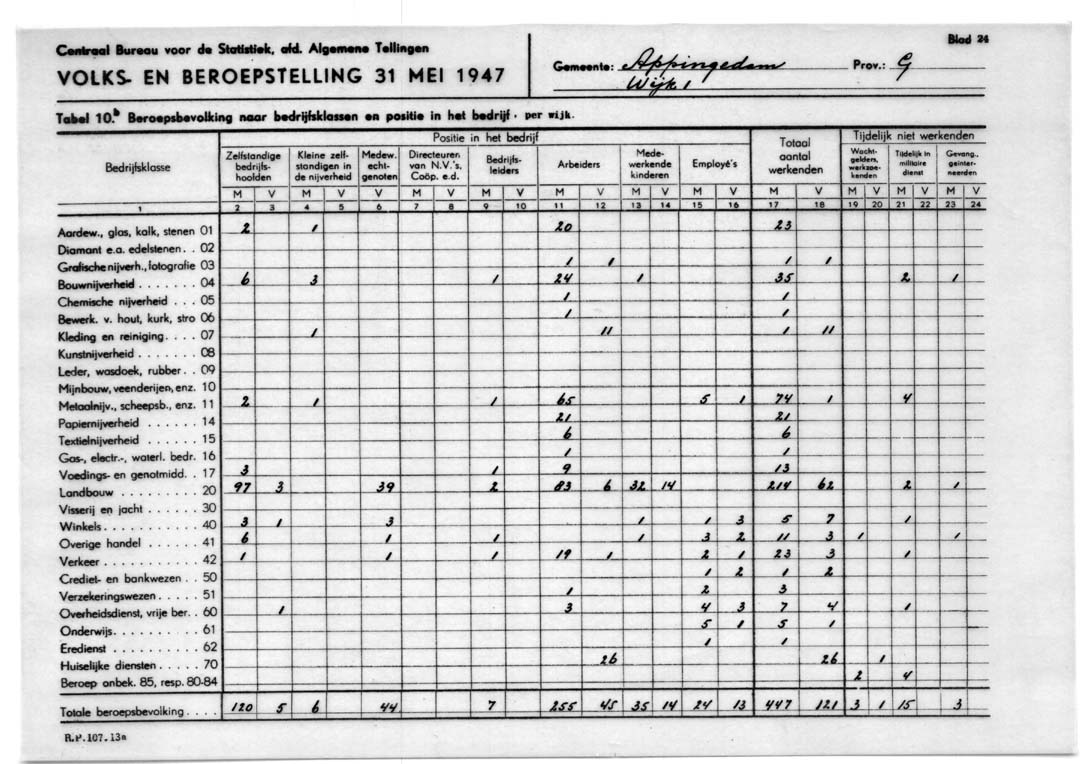 Centraal Bureau voor de Statistiek, afd. Algemene Tellingen
VOLKS- EN BEROEPSTELLING 31 MEI 1947
Gemeente: Appingedam Prov.: G
Wijk 1
Blad 24
Tabel 10.b Beroepsbevolking naar bedrijfsklassen en positie in het bedrijf . per wijk.
Bedrijfsklasse
Positie in het bedrijf
Totaal aantal werkenden
Tijdelijk niet werkenden
Zelfstandige bedrijfshoofden
Kleine zelfstandigen in de nijverheid
Medew. echtgenoten
Directeuren van N.V.'s, Coöp. e.d.
Bedrijfsleiders
Arbeiders
Medewerkende kinderen
Employé's
Wachtgelders, werkzoekenden
Tijdelijk in militaire dienst
Gevang., geïnterneerden
M V M V V M V M V M V M V M V M V M V M V M V
1 2 3 4 5 6 7 8 9 10 11 12 13 14 15 16 17 18 19 20 21 22 23 24
Aardew., glas, kalk, stenen 01 2 1 20 23
Diamant e.a. edelstenen . . 02
Grafische nijverh., fotografie 03 1 1 1 1
Bouwnijverheid . . . . . . . . 04 6 3 1 24 1 35 2 1
Chemische nijverheid . . . 05 1 1
Bewerk. v. hout, kurk, stro 06 1 1
Kleding en reiniging. . . . 07 1 11 1 11
Kunstnijverheid . . . . . . . 08
Leder, wasdoek, rubber . . 09
Mijnbouw, veenderijen, enz. 10
Metaalnijv., scheepsb., enz. 11 2 1 1 65 5 1 74 1 4
Papiernijverheid . . . . . . 14 21 21
Textielnijverheid . . . . . . 15 6 6
Gas-, electr.-, waterl. bedr. 16 1 1
Voedings- en genotmidd. . 17 3 1 9 13
Landbouw . . . . . . . . . 20 97 3 39 2 83 6 32 14 214 62 2 1
Visserij en jacht . . . . . . 30
Winkels . . . . . . . . . . . 40 3 1 3 1 1 3 5 7 1
Overige handel . . . . . . 41 6 1 1 1 3 2 11 3 1 1
Verkeer . . . . . . . . . . . 42 1 1 1 19 1 2 1 23 3 1
Crediet- en bankwezen . . 50 1 2 1 2
Verzekeringswezen . . . . . 51 1 2 3
Overheidsdienst, vrije ber. . 60 1 3 4 3 7 4 1
Onderwijs. . . . . . . . . . 61 5 1 5 1
Eredienst . . . . . . . . . . 62 1 1
Huiselijke diensten . . . . . 70 26 26 1
Beroep onbek. 85, resp. 80-84 2 4
Totale beroepsbevolking . . . . 120 5 6 44 7 255 45 35 14 24 13 447 121 3 1 15 3
R.P.107.13a